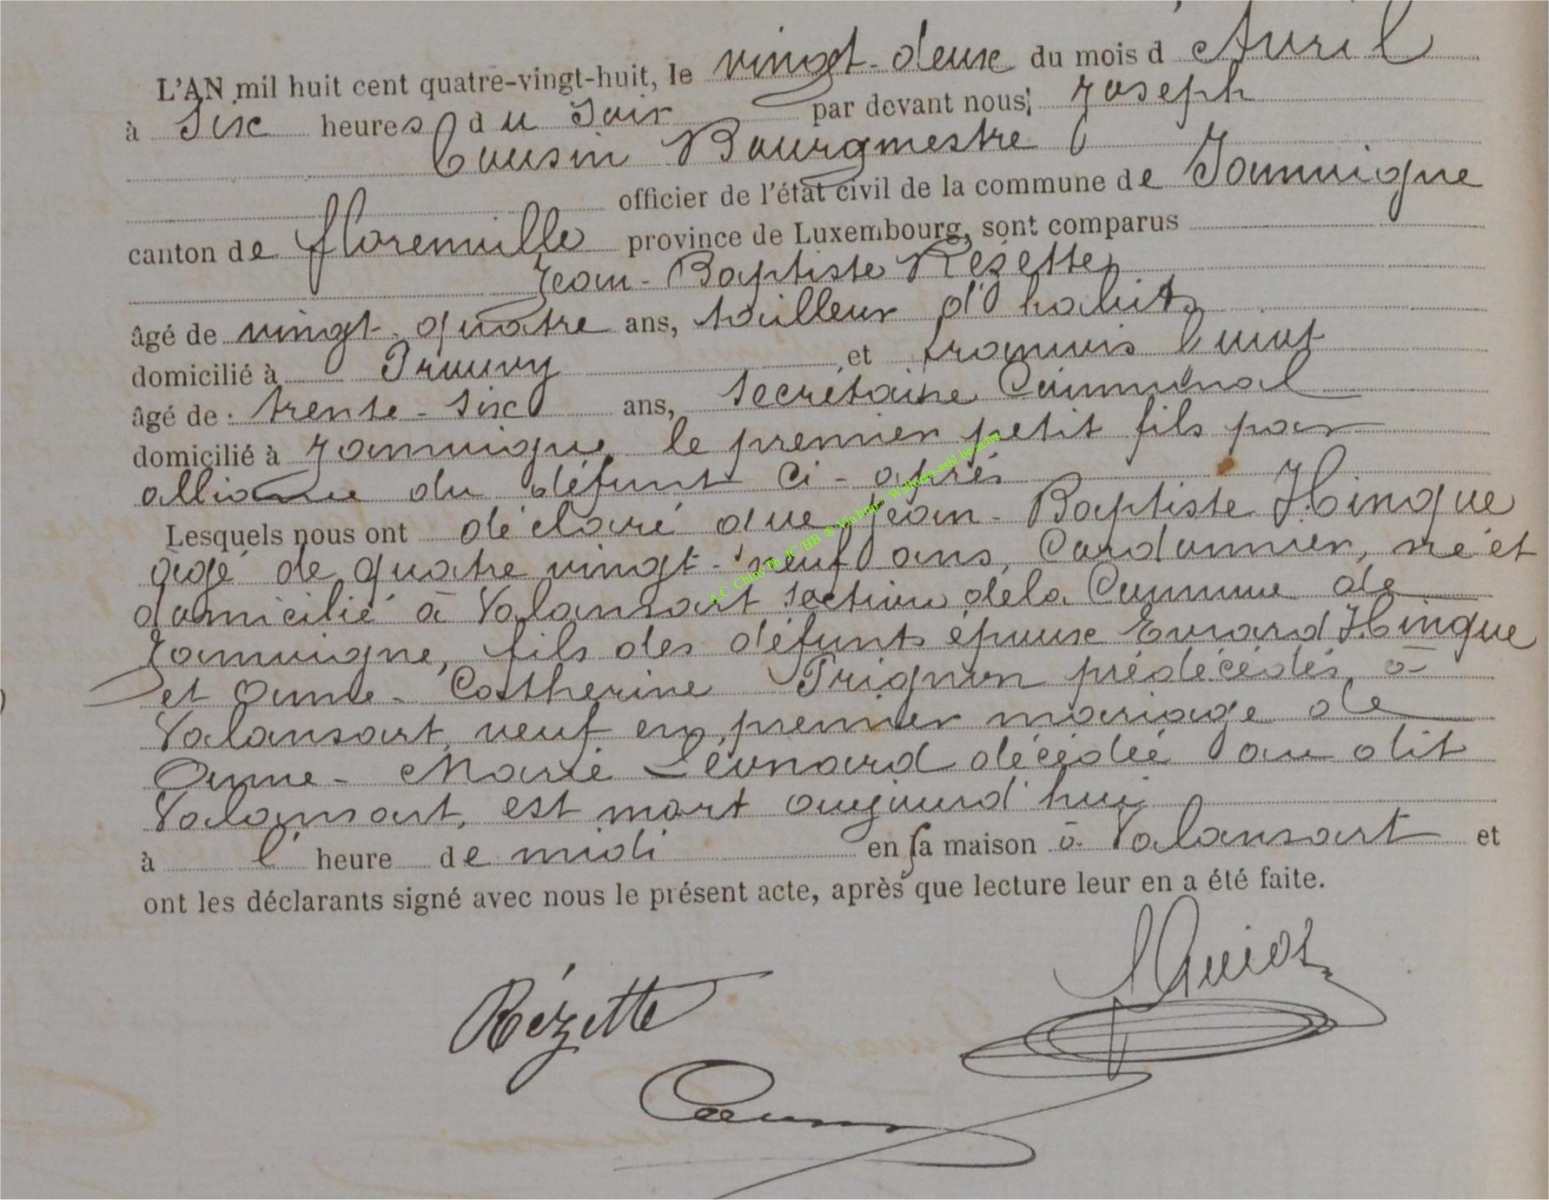 L'AN mil huit cent quatre-vingt-huit, le vingt-deux du mois d'Avril
à Six heures du Soir par devant nous, Joseph
Cousin Bourgmestre
officier de l'état civil de la commune de Jamoigne
canton de florenville province de Luxembourg, sont comparus
Jean-Baptiste Rézette
âgé de vingt-quatre ans, tailleur d'habits
domicilié à Prouvy et françois
âgé de trente-six ans, Secrétaire Communal
domicilié à Jamoigne, le premier petit fils par
alliance du défunt ci-après
Lesquels nous ont déclaré que Jean-Baptiste Hinque
âgé de quatre vingt-neuf ans, Cordonnier, né et
domicilié à Valansart section dela Commune de
Jamoigne, fils des défunts époux Evrard Hinque
et Anne-Catherine Prignon prédécédés à
Valansart, veuf en premier mariage de
Anne-Marie Léonard décédée au dit
Valansart, est mort aujourd'hui
à l' heure de midi en sa maison à Valansart et
ont les déclarants signé avec nous le présent acte, après que lecture leur en a été faite.
Rézette